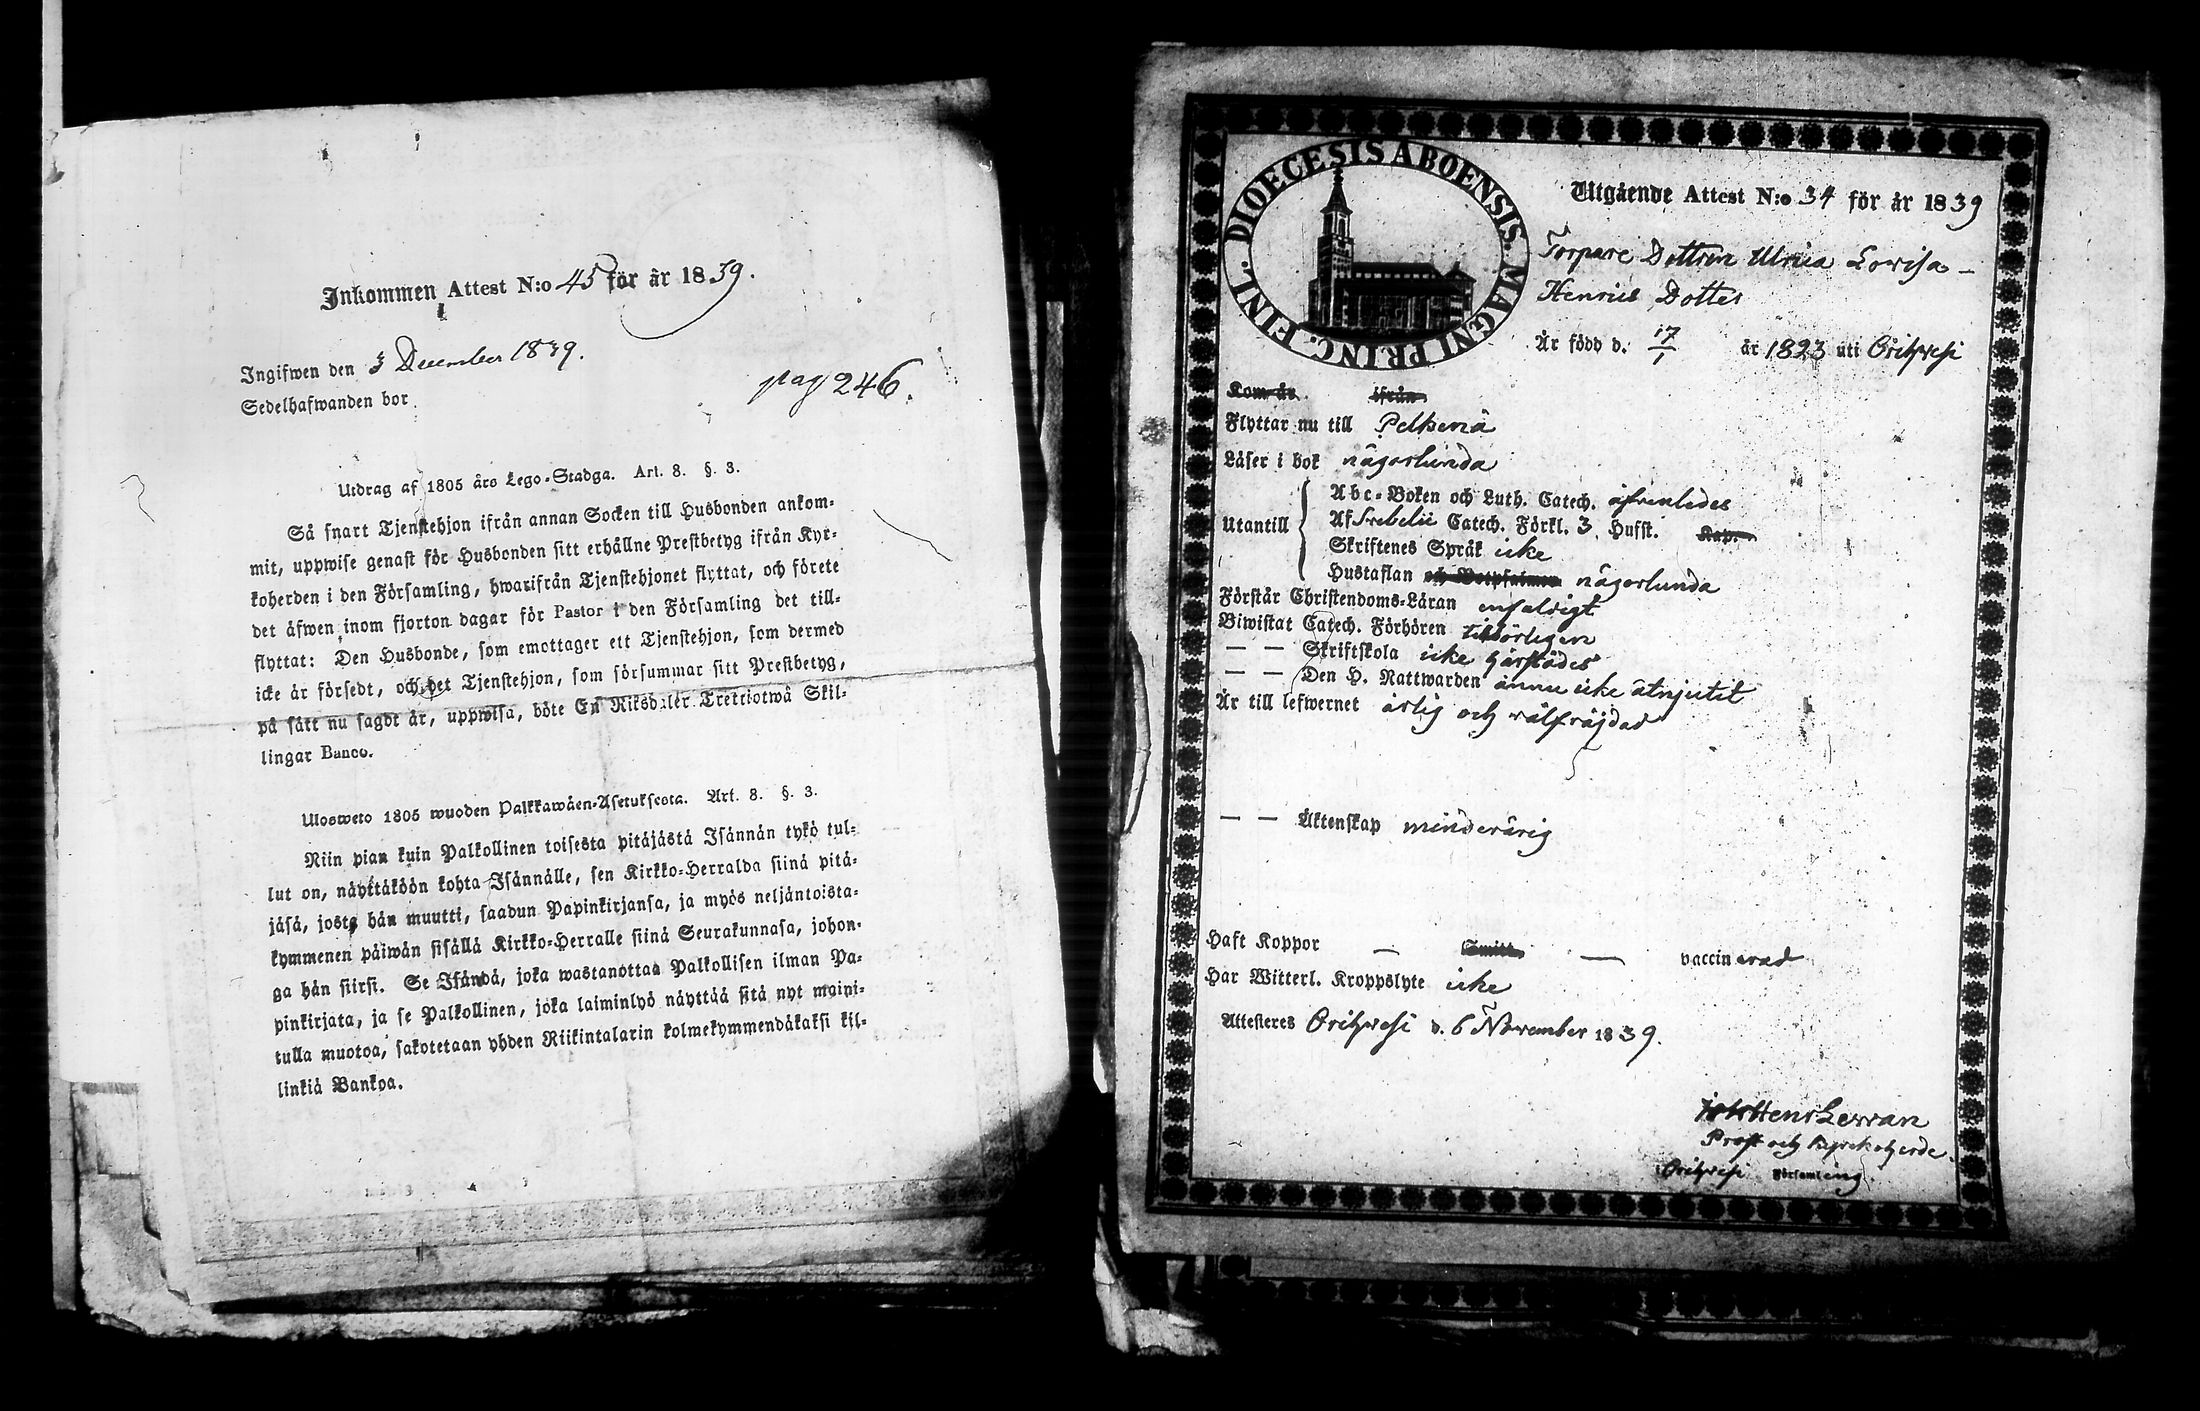 Inkommen Attest N:o 45 för år 1839.
Ingifwen den 3 December 1839.
Sedelhafwanden bor
pag 246.
Utdrag af 1805 års Lego-Stadga. Art. 8. §. 3.
Så snart Tjenstehjon ifrån annan Socken till Husbonden ankom-
mit, uppwise genast för Husbonden sitt erhållne Prestbetyg ifrån Kyr-
koherden i den Församling, hwarifrån Tjenstehjonet flyttat, och förete
det äfwen inom fjorton dagar för Pastor i den Församling det till-
flyttat: Den Husbonde, som emottager ett Tjenstehjon, som dermed
icke är försedt, och det Tjenstehjon, som försummar sitt Prestbetyg,
på sätt nu sagdt är, uppwisa, böte En Riksdaler Trettiotwå Skil-
lingar Banco.
Ulosweto 1805 wuoden Palkkawäen-Asetuksesta. Art. 8. §. 3.
Niin pian kuin Palkollinen toisesta pitäjästä Isännän tykö tul-
lut on, näyttäköön kohta Isännälle, sen Kirkko-Herralda siinä pitä-
jäsä, josta hän muutti, saadun Papinkirjansa, ja myös neljäntoista-
kymmenen päiwän sisällä Kirkko-Herralle siinä Seurakunnasa, johon-
ga hän siirsi. Se Isändä, joka wastanottaa Palkollisen ilman Pa-
pinkirjata, ja se Palkollinen, joka laiminlyö näyttää sitä nyt maini-
tulla muotoa, sakotetaan yhden Riikintalarin kolmekymmendäkaksi kil-
linkiä Bankoa.
DIOECESIS ABOENSIS. MAGNI PRINC. FINL.
Utgående Attest N:o 34 för år 1839
Torpare Dottren Ulrica Lovisa
Henrics Dotter
Är född d. 17/1 år 1823 uti Orihvesi
Kom år ifrån
Flyttar nu till Pelkenä
Läser i bok någorlunda
Utantill
Abc-Boken och Luth. Catech. äfvenledes
Af Svebelii Catech. Förkl. 3 Hufst. Kap.
Skriftenes Språk icke
Hustaflan och Botpsalmen någorlunda
Förstår Christendoms-Läran enfaldigt
Biwistat Catech. Förhören tillbörligen
— — Skriftskola icke härstädes
— — Den H. Nattwarden ännu icke åtnjutit
Är till lefwernet ärlig och välfräjdad
— — Äktenskap minderårig
Haft Koppor — Smitt. — vaccinerad
Har Witterl. Kroppslyte icke
Attesteres Orihvesi d. 6 November 1839.
Henr Lewan
Prost och Kyrckoherde.
Orihvesi Församling